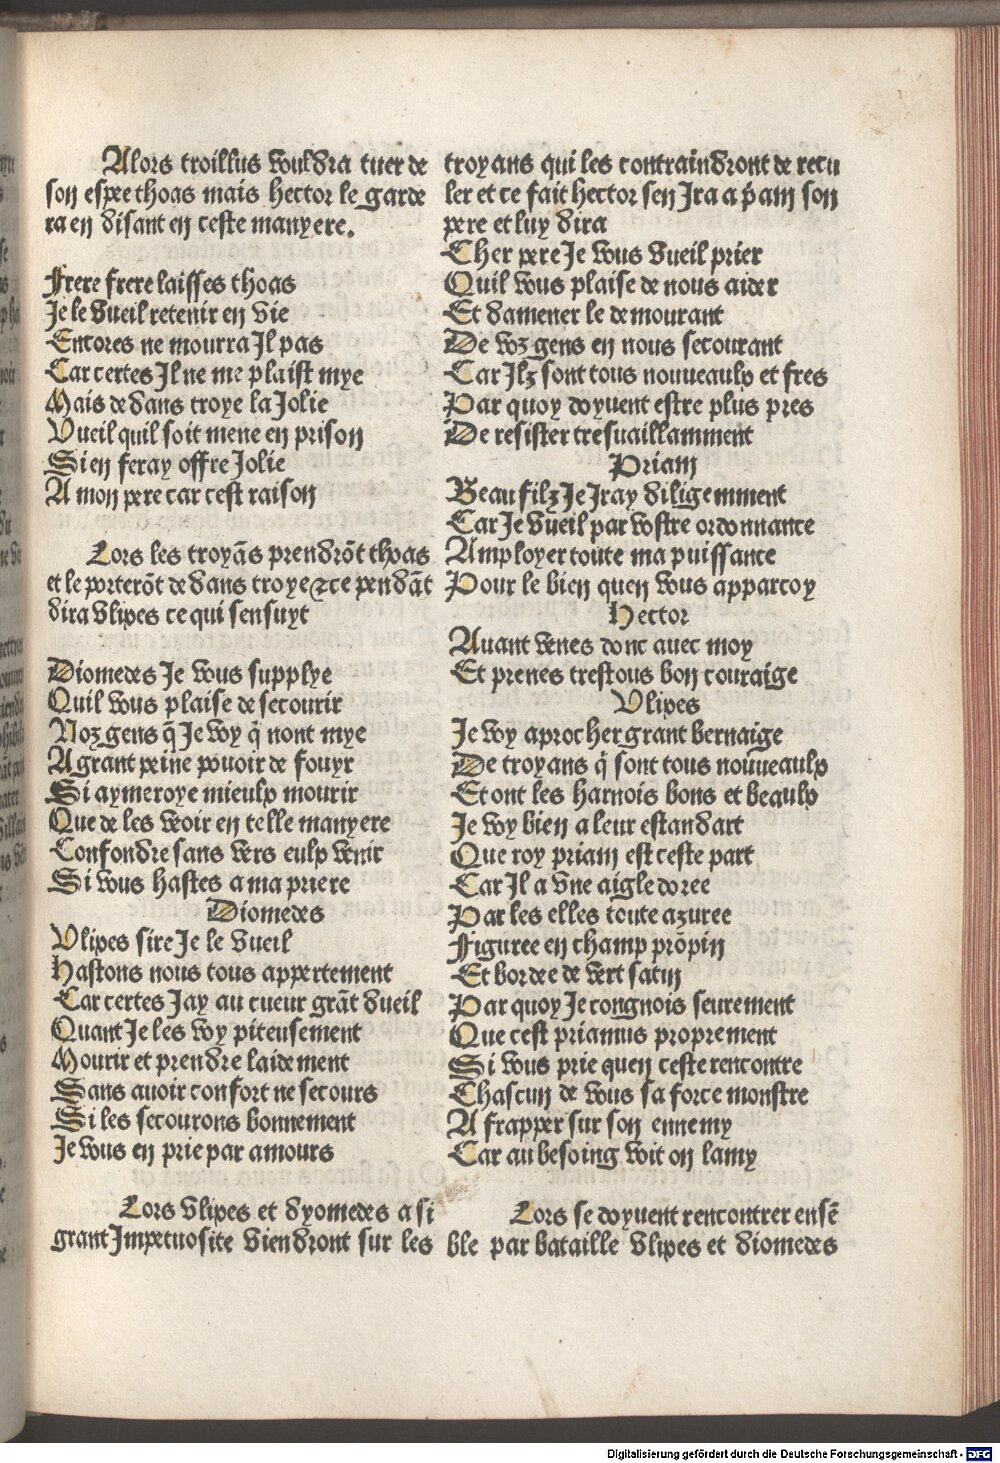 Alors troillus vouldra tuer de
son espee thoas mais hector le garde
ra en disant en ceste manyere.
Frere frere laisses thoas
Je le vueil retenir en vie
Encores ne mourra Il pas
Car certes Il ne me plaist mye
Mais dedans troye la Jolie
Vueil quil soit mene en prison
Si en feray offre Jolie
A mon pere car cest raison
Lors les troyãs prendrõt thoas
et le porterõt dedans troye ⁊ ce pendãt
dira vlixes ce qui sensuyt
Diomedes Je vous supplye
Quil vous plaise de secourir
Noz gens q̃ Je voy q̃ nont mye
A grant peine pouoir de fouyr
Si aymeroye mieulx mourir
Que de les veoir en telle manyere
Confondre sans vers eulx venir
Si vous hastes a ma priere
Diomedes
Vlixes sire Je le vueil
Hastons nous tous appertement
Car certes Jay au cueur grãt dueil
Quant Je les voy piteusement
Mourir et prendre laidement
Sans auoir confort ne secours
Si les secourons bonnement
Je vous en prie par amours
Lors vlixes et dyomedes a si
grant Impetuosite viendront sur les
troyans qui les contraindront de recu
ler et ce fait hector sen Jra a p̃am son
pere et luy dira
Cher pere Je vous vueil prier
Quil vous plaise de nous aider
Et damener le demourant
De voz gens en nous secourant
Car Ilz sont tous nouueaulx et fres
Par quoy doyuent estre plus pres
De resister tresuaillamment
Priam
Beau filz Je Jray diligemment
Car Je vueil par vostre ordonnance
Amployer toute ma puissance
Pour le bien quen vous apparcoy
Hector
Auant venes donc auec moy
Et prenes trestous bon couraige
Vlixes
Je voy aprocher grant bernaige
De troyans q̃ sont tous nouueaulx
Et ont les harnois bons et beaulx
Je voy bien a leur estandart
Que roy priam est ceste part
Car Il a vne aigle doree
Par les elles toute azuree
Figuree en champ prõpin
Et bordee de vert satin
Par quoy Je congnois seurement
Que cest priamus proprement
Si vous prie quen ceste rencontre
Chascun de vous sa force monstre
A frapper sur son ennemy
Car au besoing voit on lamy
Lors se doyuent rencontrer ensẽ
ble par bataille vlixes et diomedes
Digitalisierung gefördert durch die Deutsche Forschungsgemeinschaft - DFG